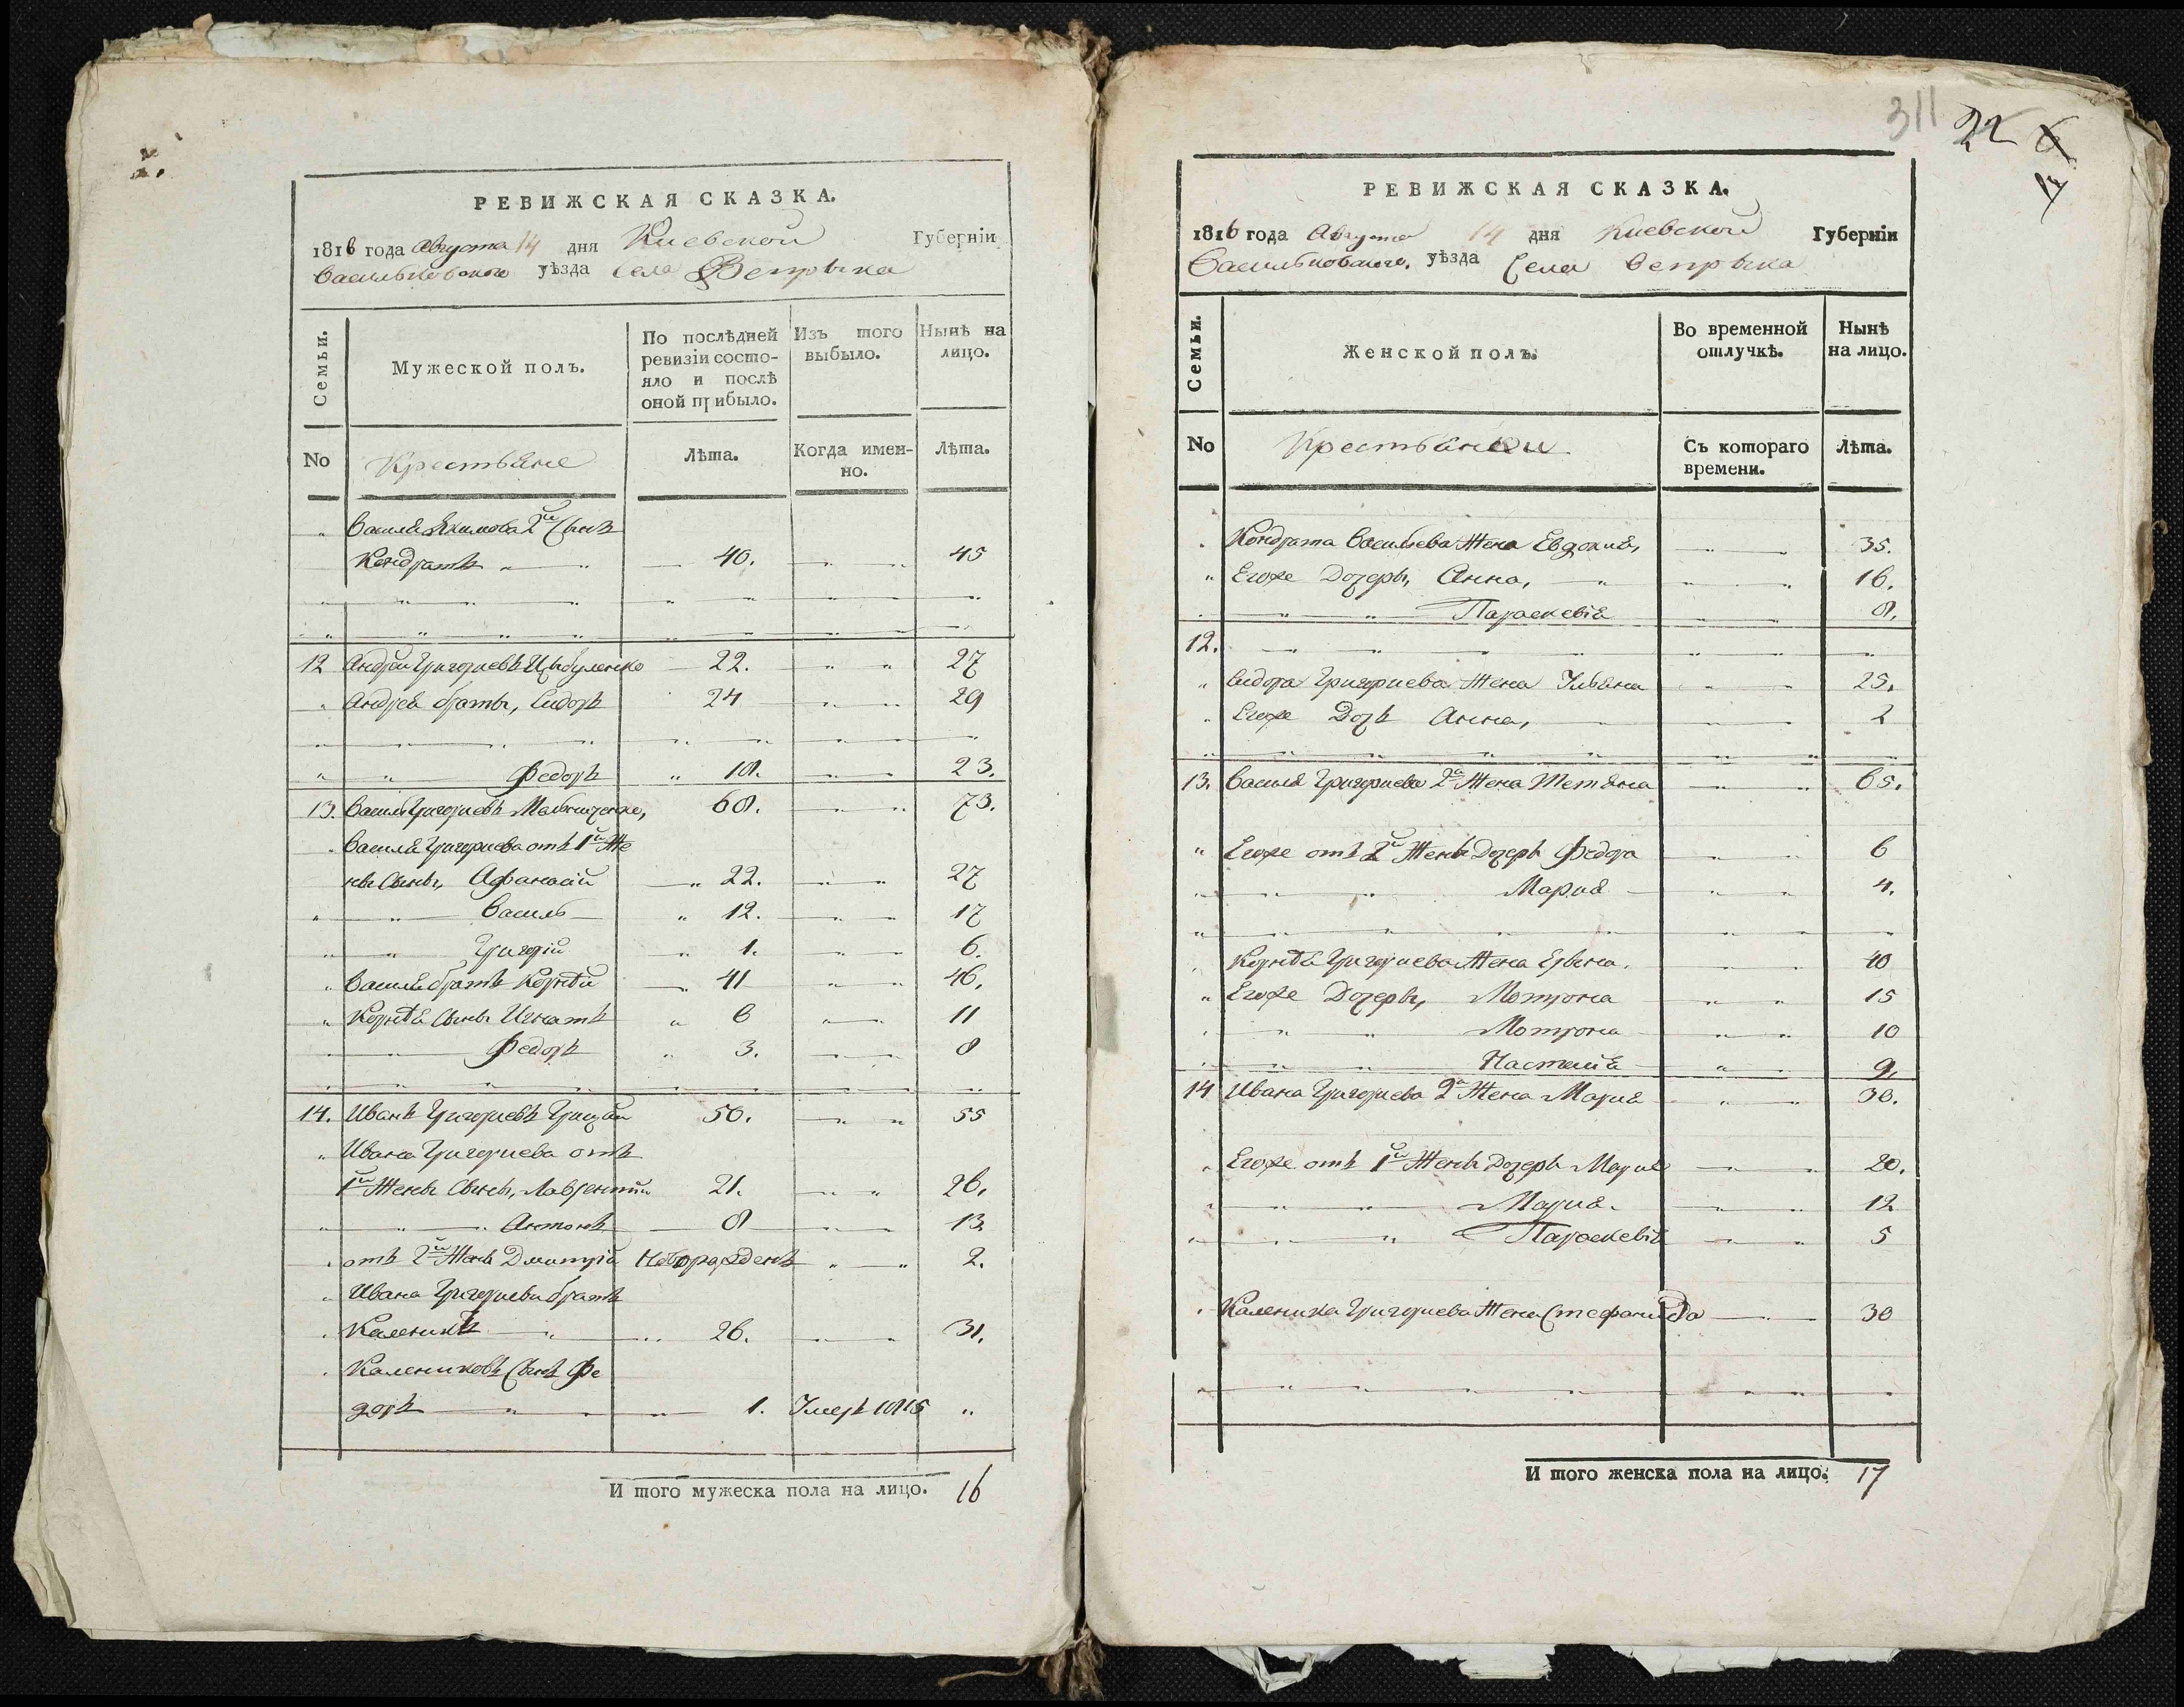 РЕВИЖСКАЯ СКАЗКА.
1816 года Августа 14 дня Киевской Губерніи
Васильковского уѣзда Села Вепрыка
Семьи.
Мужеской полъ.
По послѣдней ревизіи состояло и послѣ оной прибыло.
Изъ того выбыло.
Нынѣ на лицо.
No
Крестьяне
Лѣта.
Когда именно.
Лѣта.
Василя Якимова 2й Сынъ
Кондратъ 40. 45
12 Андрей Григориевъ Цыбуленко 22. 27
Андрея браты, Сидоръ 24 29
Федоръ 18. 23.
13. Василь Григориевъ 68. 73.
Василя Григориева отъ 1й Же
ны Сыны, Афанасій 22. 27
Василь 12. 17
Григорій 1. 6.
Василя братъ Корнѣй 41 46.
Корнѣя Сыны Игнатъ 6 11
Федоръ 3. 8
14. Иванъ Григориевъ Грицай 50. 55
Ивана Григориева отъ
1й Жены Сыны, Лаврентій 21. 26.
Антонъ 8 13
отъ 2й Жены Дмитрій Новорожденъ 2.
Ивана Григориева братъ
Каленикъ 26. 31.
Калениковъ Сынъ Фе
доръ 1. Умеръ 1815
И того мужеска пола на лицо. 16
311 22 6
17
РЕВИЖСКАЯ СКАЗКА.
1816 года Августа 14 дня Киевской Губерніи
Васильковского, уѣзда Села Вепрыка
Семьи.
Женской полъ.
Во временной отлучкѣ.
Нынѣ на лицо.
No
Крестьянки
Съ котораго времени.
Лѣта.
Кондрата Васильева Жена Евдокия, 35.
Егоже Дочеры, Анна, 16.
Параскевія 8.
12.
Сидора Григориева Жена Ульяна 25.
Егоже Дочъ Анна, 2
13. Василя Григориева 2а Жена Тетяна 65.
Егоже отъ 2й Жены Дочеры Федора 6
Мария 4.
Корнѣя Григориева Жена 40
Егоже Дочеры, Мотрона 15
Мотрона 10
Настасия 9.
14 Ивана Григориева 2а Жена Мария 30.
Егоже отъ 1й Жены Дочеры Мария 20.
Мария. 12
Параскевія 5
Каленика Григориева Жена Стефанида 30
И того женска пола на лицо. 17